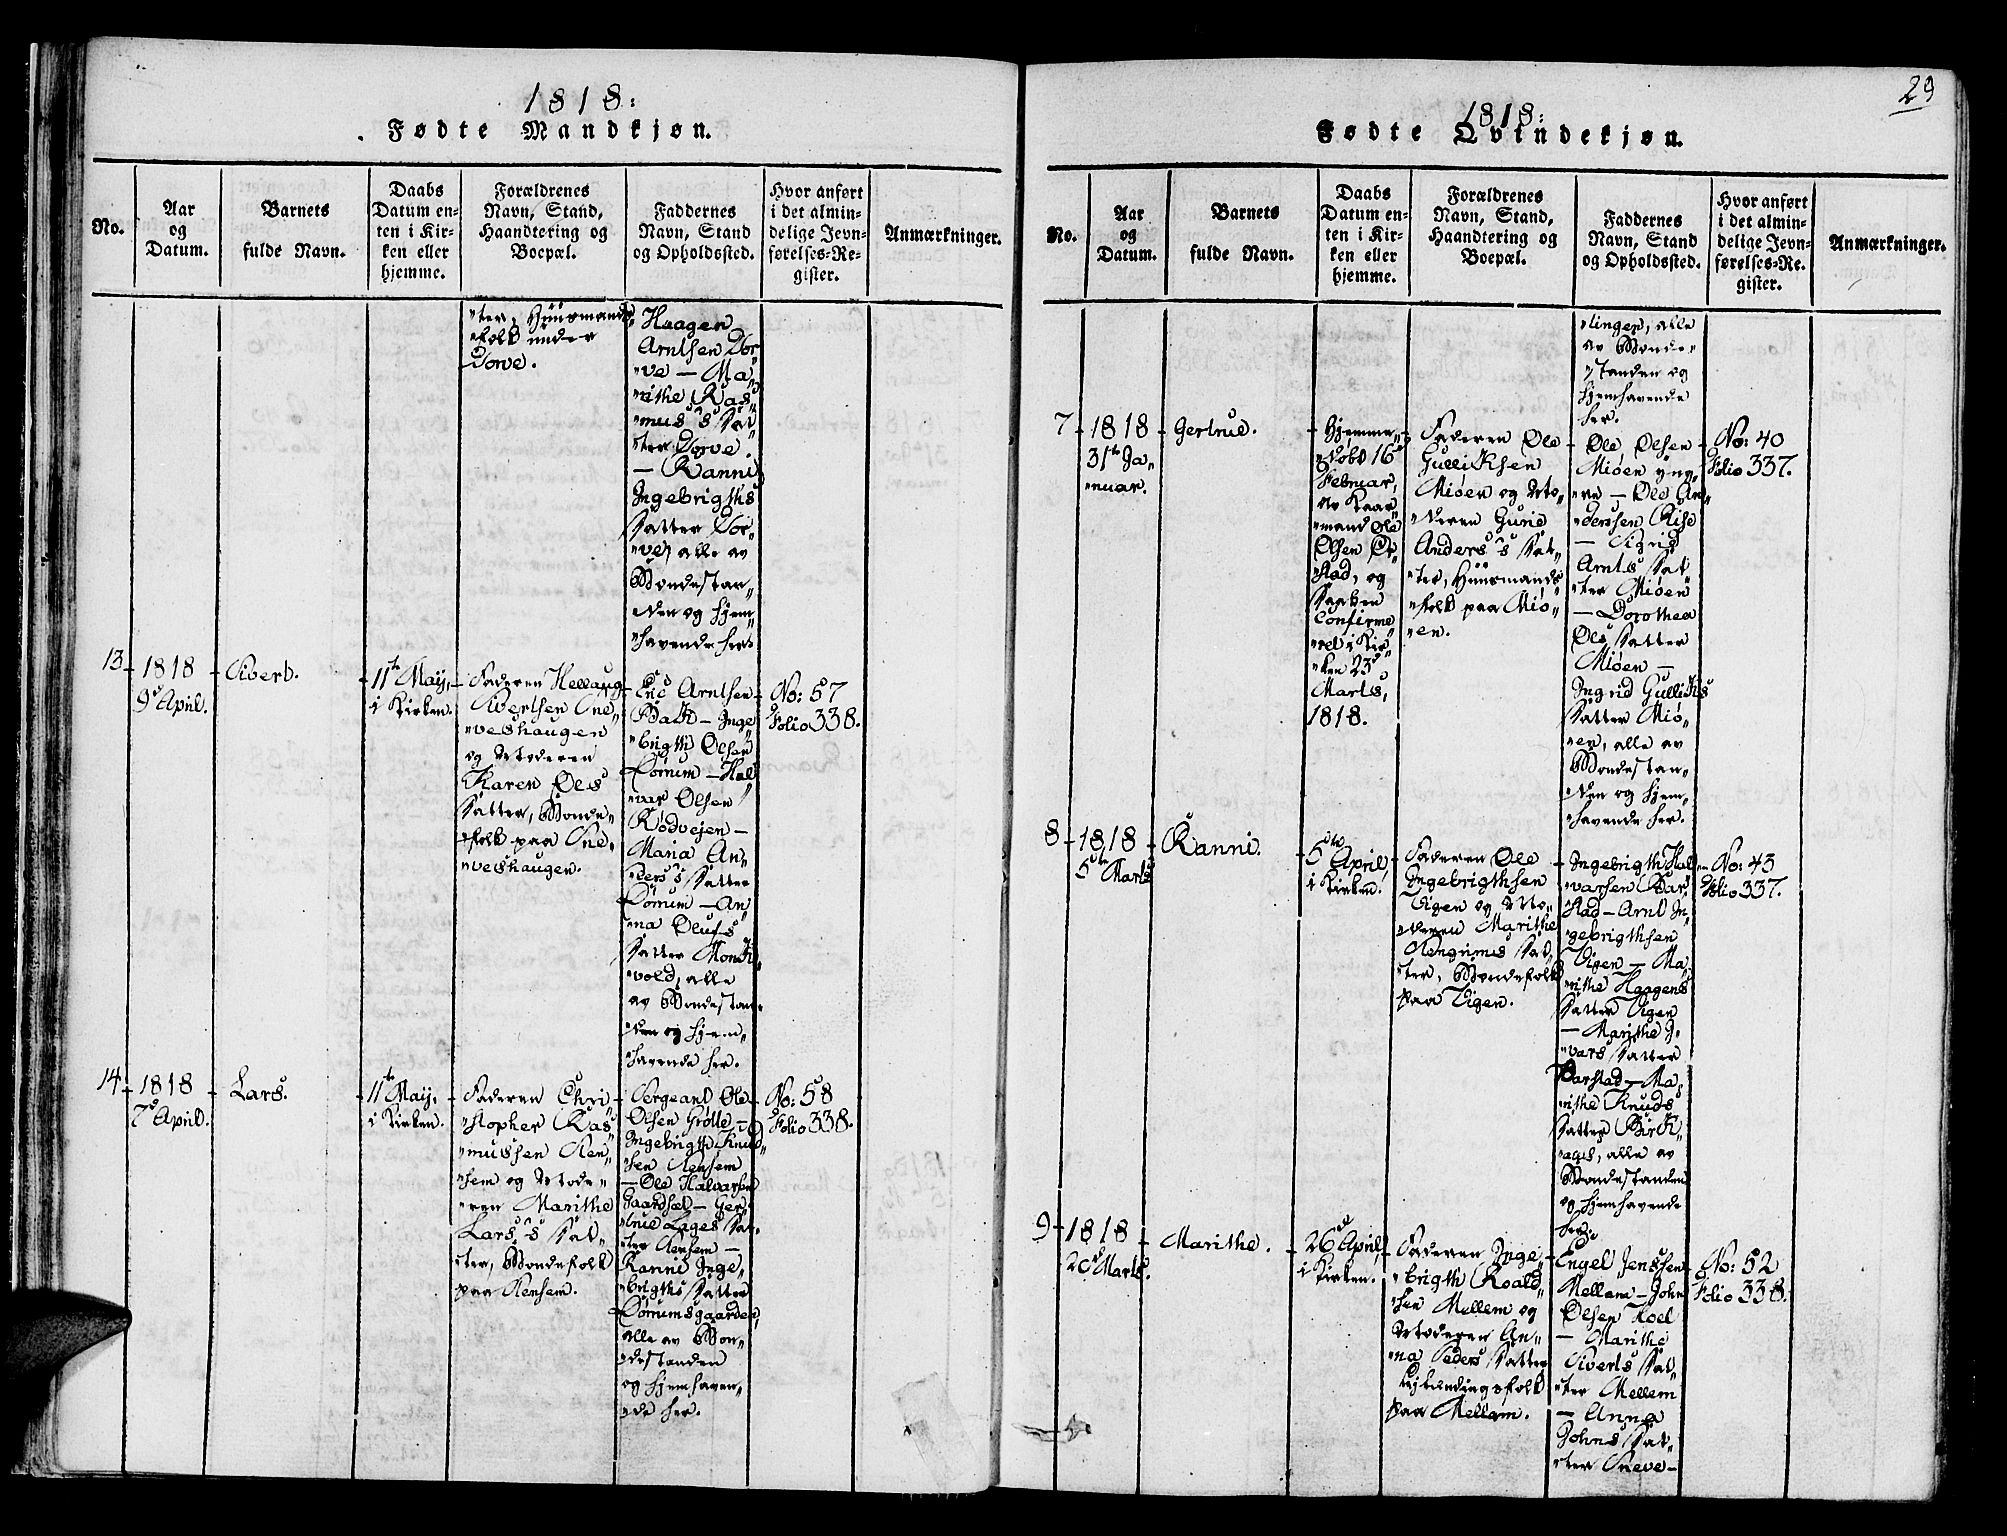 1818:
Fødte Mandkjøn.
No.
Aar
og
Datum.
Barnets
fulde Navn.
Daabs
Datum en-
ten i Kir-
ken eller
hjemme.
Forældrenes
Navn, Stand,
Haandtering og
Boepæl.
Faddernes
Navn, Stand
og Opholdssted.
Hvor anført
i det almin-
delige Jevn-
førelses-Re-
gister.
Anmærkninger.
"ter, Huusmands
"folk under
Dorve.
Haagen
Arntsen Dor"
"ve — Ma"
"rithe Ras"
"mus's Dat"
"ter Dorve.
— Ranni
Ingebrigths
Datter Dor"
"ve, alle av
Bondestan"
"den og hjem"
"havende her.
13
1818
9de April.
Sivert.
11te Maij,
i Kirken.
Faderen Hellaug
Sivertsen Sne"
"veshaugen
og Moderen
Karen Ols
Datter, Bonde"
"folk paa Sne"
"veshaugen.
Eric Arntsen
Bakk — Inge"
"brigth Olsen
Dørrum — Hal"
"var Olsen
Rødvejen —
Maria An"
"ders's Datter
Dørrum — An"
"na Olufs
Datter Monk"
"vold, alle
av Bondestan"
"den og hjem"
"havende her.
No: 57
Folio 338.
14
1818
7de April.
Lars.
11te Maij,
i Kirken.
Faderen Chri"
"stopher Ras"
"mussen Ren"
"sem og Mode"
"ren Marithe
Lars's Dat"
"ter, Bondefolk
paa Rensem.
Sergeant Ole
Olsen Grøtte —
Ingebrigth Knud"
"sen Rensem
— Ole Halvarsen
Gaardsæl — Ger"
"true Lages Dat"
"ter Rensem —
Ranni Inge"
"brigths Datter
Dørrumsgaarden,
alle av Bon"
"destanden
og hjemhaven"
"de her.
No: 58
Folio 338.
29
1818:
Fødte Qvindekjøn.
No.
Aar
og
Datum.
Barnets
fulde Navn.
Daabs
Datum en-
ten i Kir-
ken eller
hjemme.
Forældrenes
Navn, Stand,
Haandtering og
Boepæl.
Faddernes
Navn, Stand
og Opholdssted.
Hvor anført
i det almin-
delige Jevn-
førelses-Re-
gister.
Anmærkninger.
"linger, alle
av Bonde"
"standen og
hjemhavende
her.
7
1818
31te Ja"
"nuar.
Gertrue.
Hjemme"
"døbt 16de
Februar,
av Kaar"
"mand Ole
Olsen
"stad, og
Daaben
Confirme"
"ret i Kir"
"ken 23de
Marts,
1818.
Faderen Ole
Gulliksen
Miøen og Mo"
"deren Gurie
Anders's Dat"
"ter, Huusmands
"folk paa Miø"
"en.
Ole Olsen
Miøen yng"
"re — Ole An"
"derssen Rise
— Sigrid
Arnts Dat"
"ter Miøen
— Dorothea
Ols Datter
Miøen —
Ingrid Gulliks
Datter Miø"
"en, alle av
Bondestan"
"den og hjem"
"havende her.
No: 40
Folio 337.
8
1818
5te Marts
Ranni.
5te April,
i Kirken.
Faderen Ole
Ingebrigthsen
Vigen og Mo"
"deren Marithe
Dat"
"ter, Bondefolk
paa Vigen.
Ingebrigth Hal"
"varsen Bar"
"stad — Arnt In"
"gebrigthsen
Vigen — Ma"
"rithe Haagens
Datter Vigen
— Marithe I"
"vars Datter
Barstad — Ma"
"rithe Knuds
Datter Birk"
"ager, alle av
Bondestanden
og hjemhavende
her.
No: 43
Folio 337.
9
1818
20de Marts.
Marithe.
26de April,
i Kirken.
Faderen Inge"
"brigth Roald"
"sen Mellem og
Moderen An"
"na Peders Datter
paa Mellem.
Engel Jenssen
Mellem — John
Olsen Hoel
— Marithe
Siverts Dat"
"ter Mellem
— Anna
Johns Dat"
"ter Sneve-
No: 52
Folio 338.